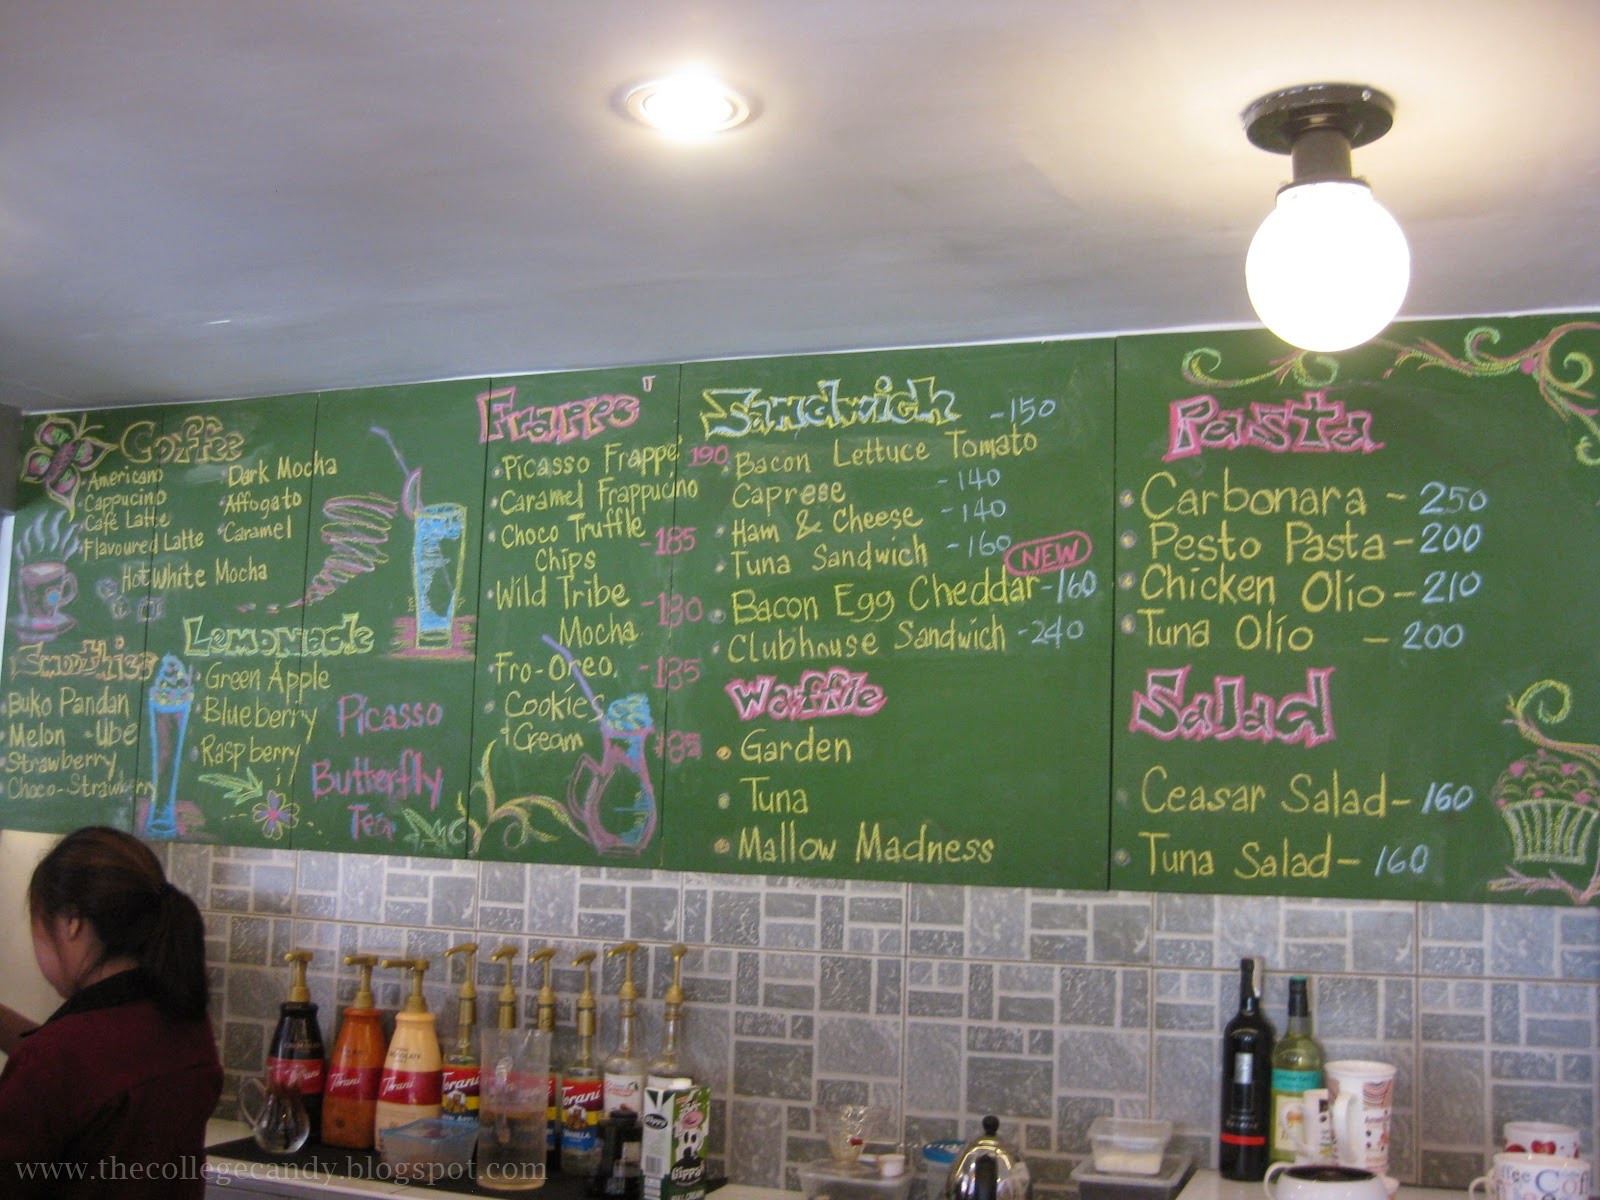 Coffee
Americano
Cappucino
Café Latte
Flavoured Latte
Hot White Mocha
Dark Mocha
Affogato
Caramel
Smoothies
Buko Pandan
Melon Ube
Strawberry
Choco-Strawberry
Lemonade
Green Apple
Blueberry
Raspberry
Picasso
Butterfly
Tea
Frappe
Picasso Frappé 190
Caramel Frappucino
Choco Truffle
Chips -185
Wild Tribe
Mocha -180
Fro-Oreo -185
Cookies
Cream
Sandwich
Bacon Lettuce Tomato -150
Caprese -140
Ham & Cheese -140
Tuna Sandwich -160
NEW
Bacon Egg Cheddar -160
Clubhouse Sandwich -240
Waffle
Garden
Tuna
Mallow Madness
Pasta
Carbonara - 250
Pesto Pasta - 200
Chicken Olio - 210
Tuna Olio - 200
Salad
Ceasar Salad - 160
Tuna Salad - 160
Torani
Torani
Torani
Torani
VANILLA
www.thecollegecandy.blogspot.com